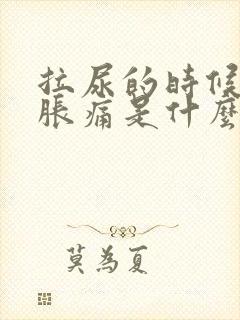 拉尿的時候
脹痛是什麼
莫為夏